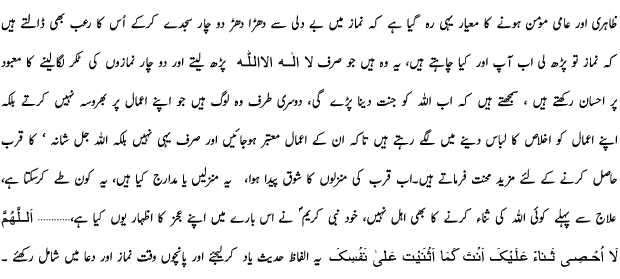 ظاہری اور عامی مؤمن ہونے کا معیار یہی رہ گیا ہے کہ نماز میں بے دلی سے دھڑا دھڑ دو چار سجدے کرکے اُس کا رعب بھی ڈالتے ہیں
کہ نماز تو پڑھ لی اب آپ اور کیا چاہتے ہیں، یہ وہ ہیں جو صرف لا الٰہ الااللّٰہ پڑھ لینے اور دو چار نمازوں کی ٹکر لگالینے کا معبود
پر احسان رکھتے ہیں ، سمجھتے ہیں کہ اب اللہ کو جنت دینا پڑے گی، دوسری طرف وہ لوگ ہیں جو اپنے اعمال پر بھروسہ نہیں کرتے بلکہ
اپنے اعمال کو اخلاص کا لباس دینے میں لگے رہتے ہیں تاکہ ان کے اعمال معتبر ہوجائیں اور صرف یہی نہیں بلکہ اللہ جل شانہ ٗ کا قرب
حاصل کرنے کے لئے مزید محنت فرماتے ہیں۔اب قرب کی منزلوں کا شوق پیدا ہوا، یہ منزلیں یا مدارج کیا ہیں، یہ کون طے کرسکتا ہے،
علاج سے پہلے کوئی اللہ کی ثناء کرنے کا بھی اہل نہیں، خود نبی کریم ؐ نے اس بارے میں اپنے عجز کا اظہار یوں کیا ہے،............ اَللّٰھُمَّ
لَا اُحْصِیْ ثَنَاءً عَلَیْکَ اَنْتَ کَمَا اَثْنَیْتَ عَلیٰ نَفْسِکَ یہ الفاظ حدیث یاد کرلیجئے اور پانچوں وقت نماز اور دعا میں شامل رکھئے ۔